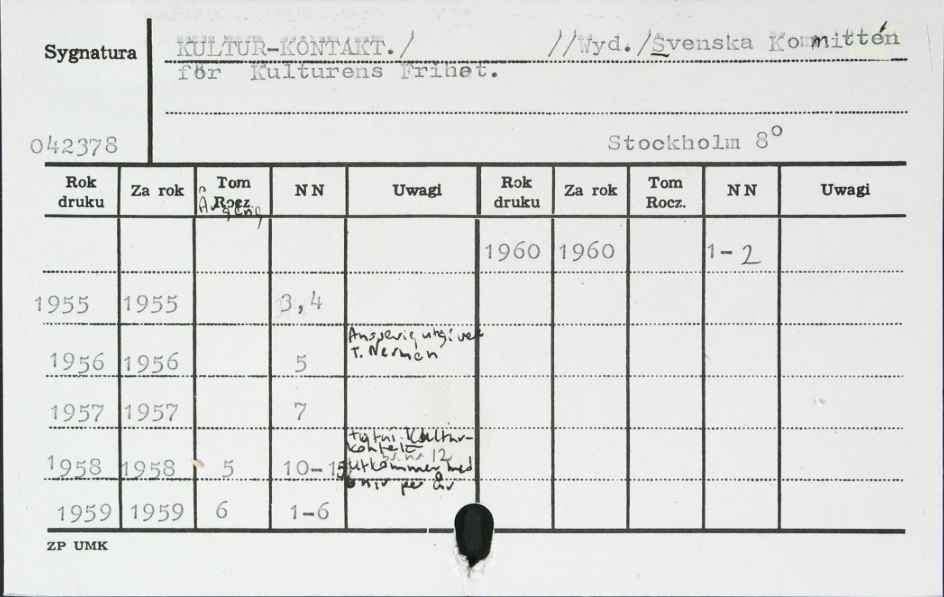 Sygnatura KULTUR-KONTAKT./ //Wyd./Svenska Kommittén
för Kulturens Frihet.
042378 Stockholm 8°
Rok druku Za rok Tom Rocz. NN Uwagi Rok druku Za rok Tom Rocz. NN Uwagi
Årgång
1960 1960 1-2
1955 1955 3,4
1956 1956 5 Ansvarig utgivare
T. Nerman
1957 1957 7
1958 1958 5 10-15 Kultur-
kontakt
nr 12
utkommer med
6 nr per år
1959 1959 6 1-6
ZP UMK